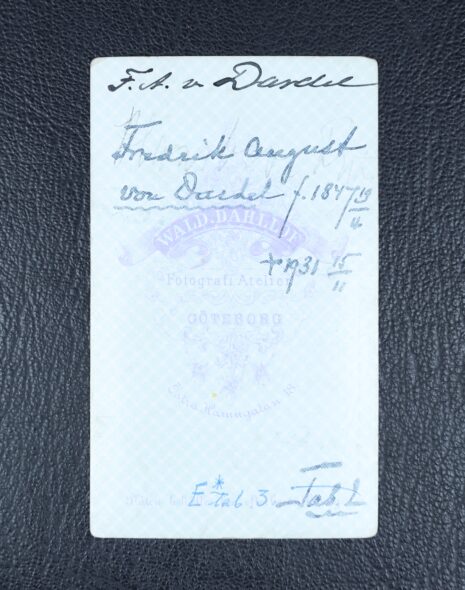 F. A. v. Dardel
Fredrik August
von Dardel f. 1847 19/4
WALD. DAHLLÖF
+ 1931 15/11
Fotografi Atelier
GÖTEBORG
Östra Hamngatan
E* tab 3. Tab. 2